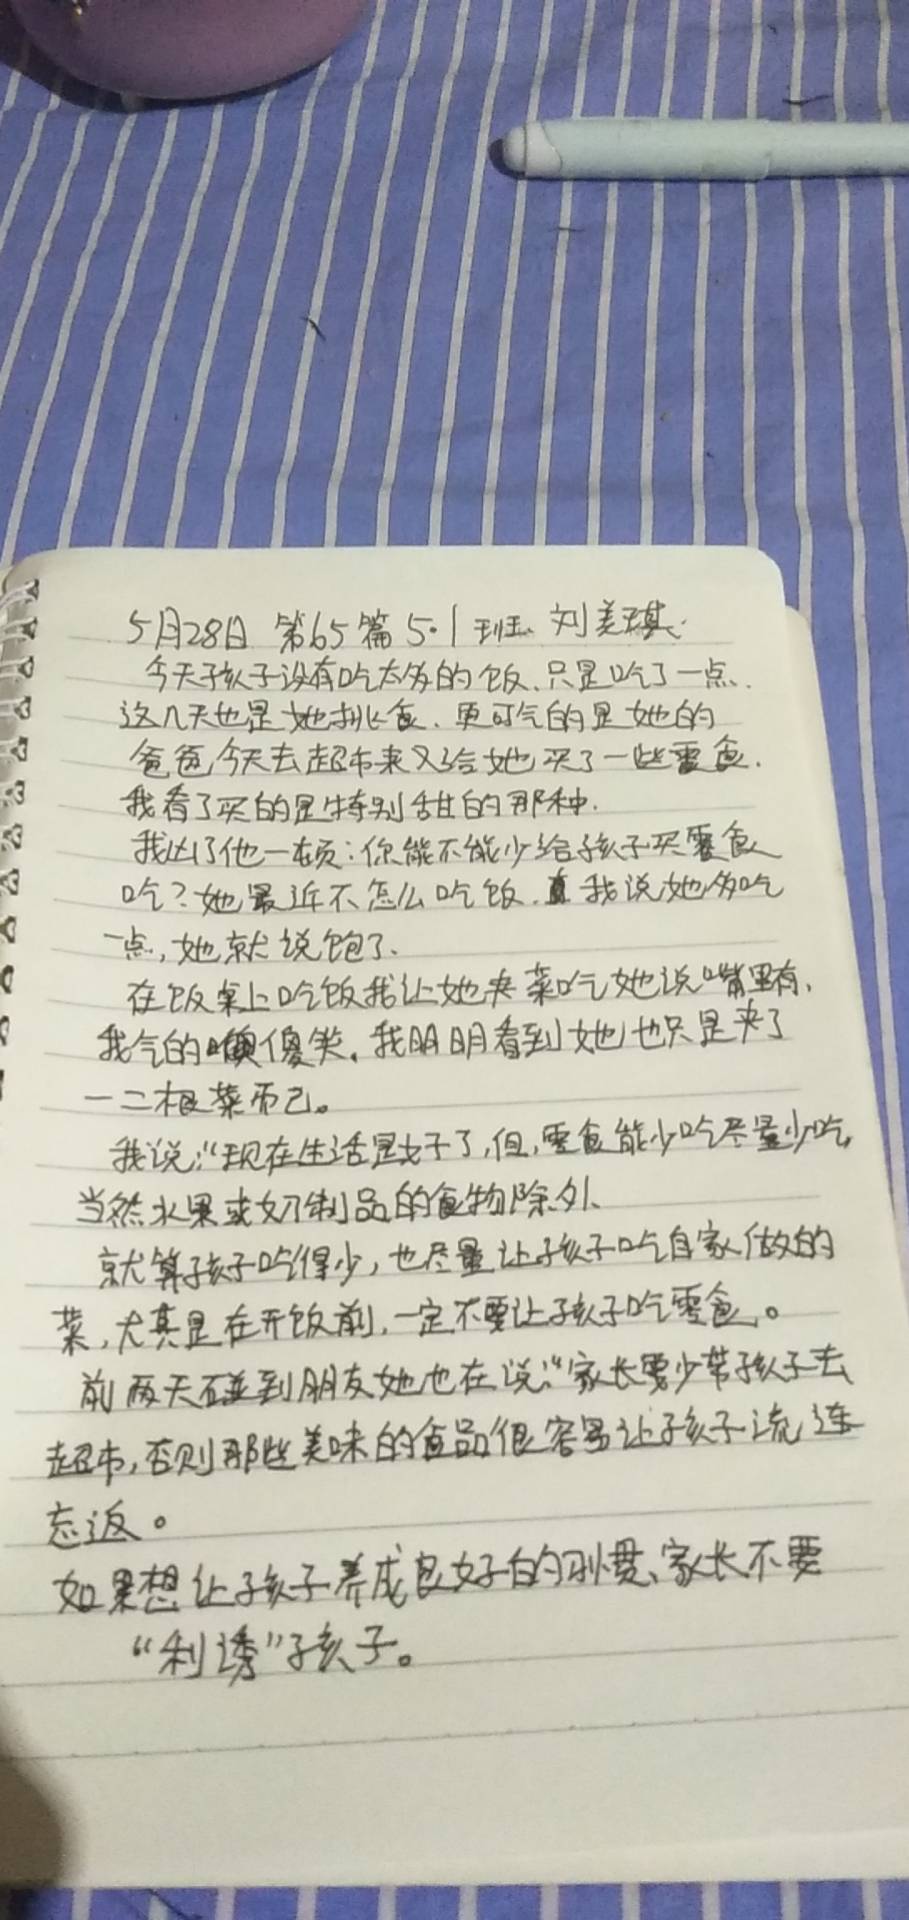 5月28日 第65篇 5.1班 刘美琪
今天孩子没有吃太多的饭.只是吃了一点.
这几天也是她挑食.更可气的是她的
爸爸今天去超市来又给她买了一些零食.
我看了买的是特别甜的那种.
我凶了他一顿:你能不能少给孩子买零食
吃?她最近不怎么吃饭.我说她多吃
一点,她就说饱了.
在饭桌上吃饭我让她夹菜吃她说嘴里有,
我气的傻笑。我明明看到她也只是夹了
一二根菜而已。
我说:“现在生活是好了,但,零食能少吃尽量少吃,
当然水果或奶制品的食物除外.
就算孩子吃得少,也尽量让孩子吃自家做的
菜,尤其是在开饭前,一定不要让孩子吃零食。
前两天碰到朋友她也在说:“家长要少带孩子去
超市,否则那些美味的食品很容易让孩子流连
忘返。
如果想让孩子养成良好的习惯、家长不要
“利诱”孩子。